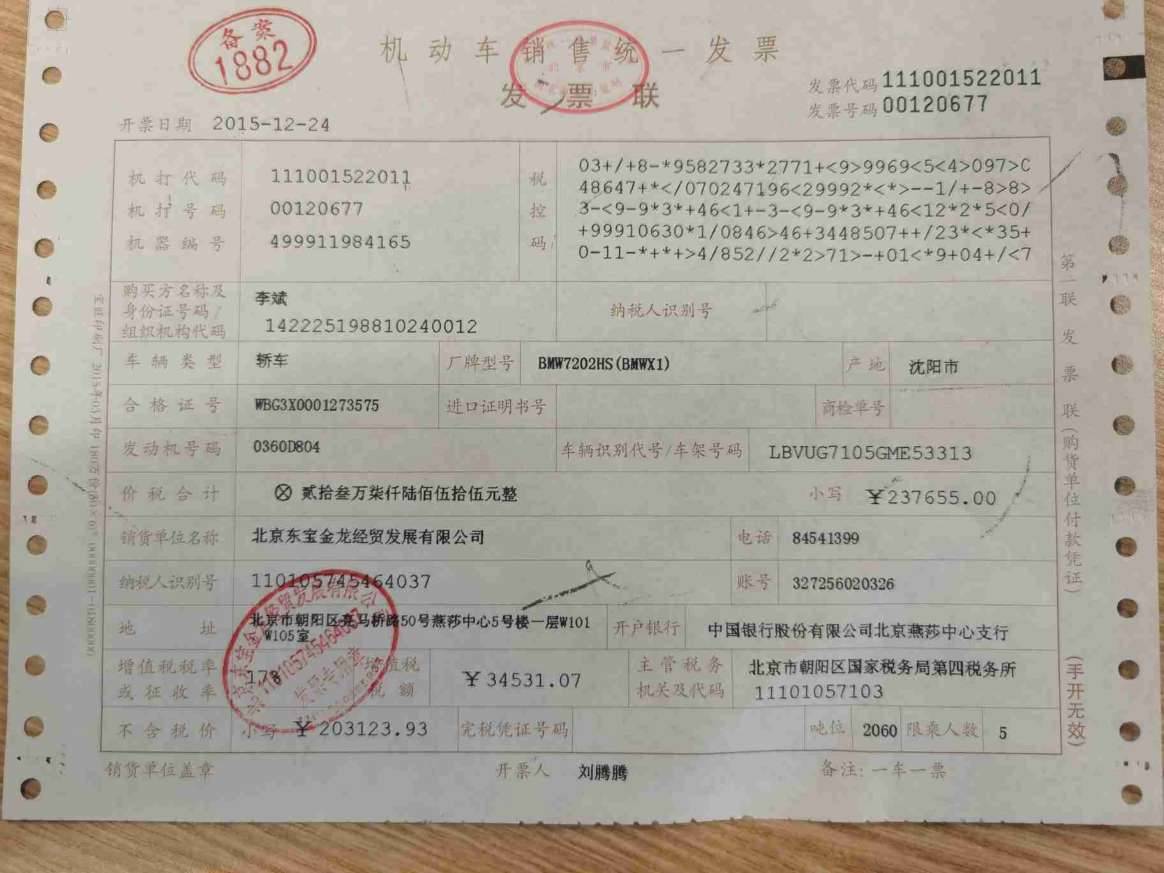 备案
1882
机动车销售统一发票
发票联
发票代码 111001522011
发票号码 00120677
开票日期 2015-12-24
机打代码 111001522011
机打号码 00120677
机器编号 499911984165
税控码
03+/+8-*9582733*2771+<9>9969<5<4>097>C
48647+*</070247196<29992*<*>--1/+-8>8>
3-<9-9*3*+46<1+-3-<9-9*3*+46<12*2*5<0/
+99910630*1/0846>46+3448507++/23*<*35+
0-11-*++*+>4/852//2*2>71>-+01<*9+04+/<7
购买方名称及
身份证号码/
组织机构代码
李斌
142225198810240012
纳税人识别号
车辆类型 轿车 厂牌型号 BMW7202HS(BMWX1) 产地 沈阳市
合格证号 WBG3X0001273575 进口证明书号 商检单号
发动机号码 0360D804 车辆识别代号/车架号码 LBVUG7105GME53313
价税合计 ⊗ 贰拾叁万柒仟陆佰伍拾伍元整 小写 ￥237655.00
销货单位名称 北京东宝金龙经贸发展有限公司 电话 84541399
纳税人识别号 110105745464037 账号 327256020326
地址 北京市朝阳区亮马桥路50号燕莎中心5号楼一层W101
W105室
开户银行 中国银行股份有限公司北京燕莎中心支行
增值税税率
或征收率
17%
增值税
税额
￥34531.07
主管税务
机关及代码
北京市朝阳区国家税务局第四税务所
11101057103
不含税价 小写 ￥203123.93 完税凭证号码 吨位 2060 限乘人数 5
销货单位盖章 开票人 刘腾腾 备注:一车一票
第一联 发票联(购货单位付款凭证)
(手开无效)
110105745464037
发票专用章